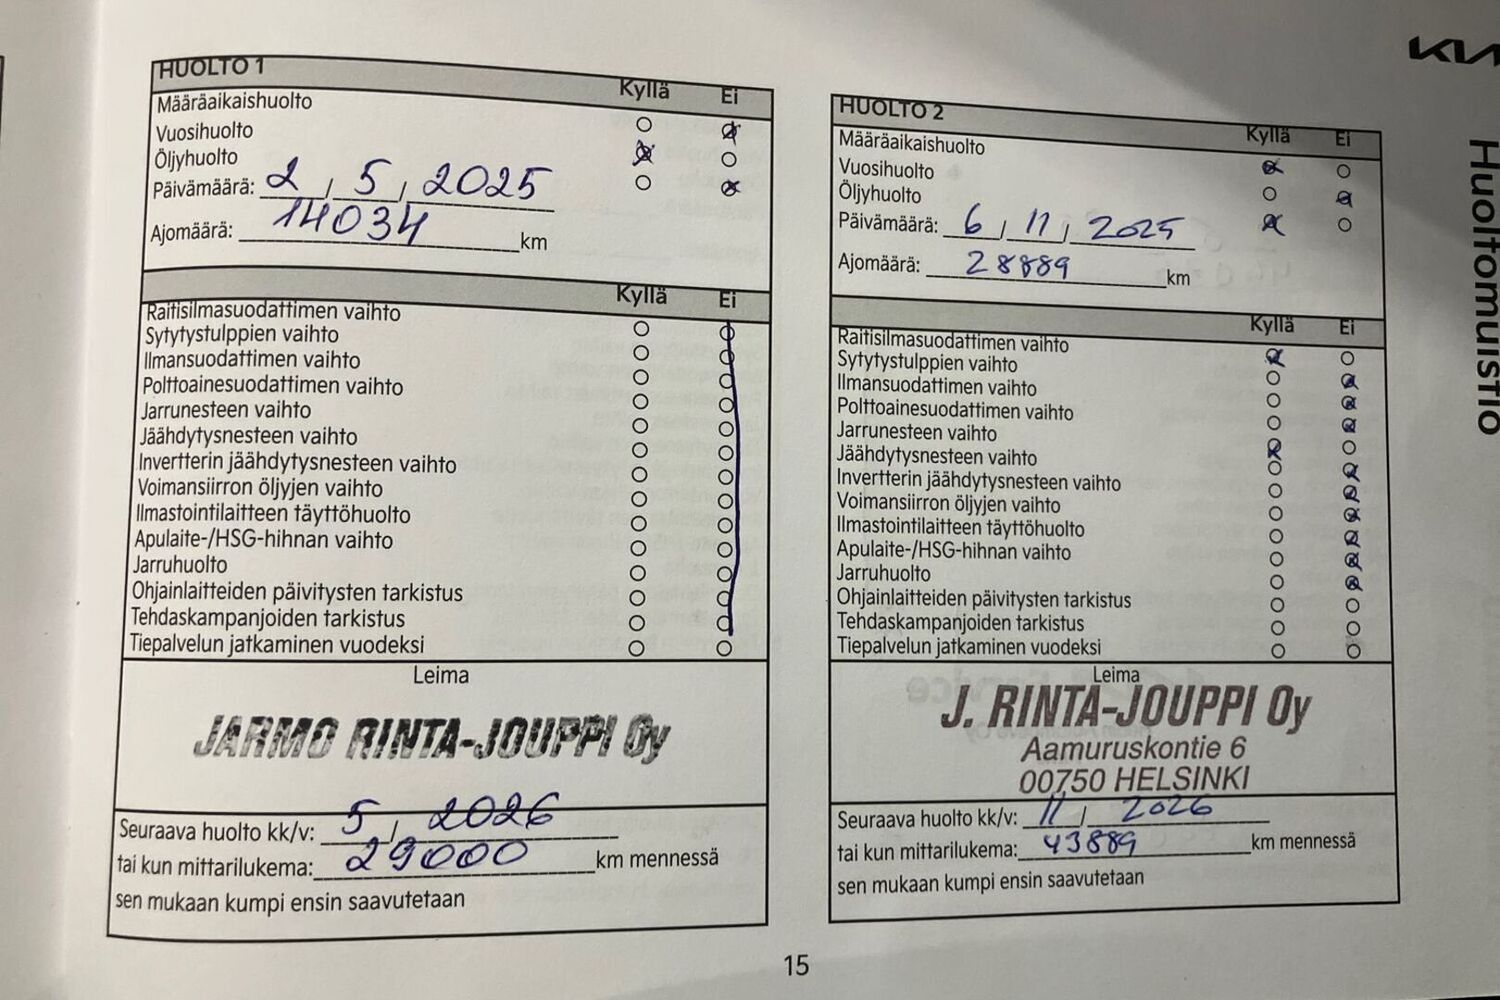 KIA
Huoltomuistio
HUOLTO 1
Kyllä Ei
Määräaikaishuolto
Vuosihuolto
Öljyhuolto
Päivämäärä: 2 / 5 / 2025
Ajomäärä: 14034 km
Kyllä Ei
Raitisilmasuodattimen vaihto
Sytytystulppien vaihto
Ilmansuodattimen vaihto
Polttoainesuodattimen vaihto
Jarrunesteen vaihto
Jäähdytysnesteen vaihto
Invertterin jäähdytysnesteen vaihto
Voimansiirron öljyjen vaihto
Ilmastointilaitteen täyttöhuolto
Apulaite-/HSG-hihnan vaihto
Jarruhuolto
Ohjainlaitteiden päivitysten tarkistus
Tehdaskampanjoiden tarkistus
Tiepalvelun jatkaminen vuodeksi
Leima
JARMO RINTA-JOUPPI Oy
Seuraava huolto kk/v: 5 / 2026
tai kun mittarilukema: 29000 km mennessä
sen mukaan kumpi ensin saavutetaan
HUOLTO 2
Kyllä Ei
Määräaikaishuolto
Vuosihuolto
Öljyhuolto
Päivämäärä: 6 / 11 / 2025
Ajomäärä: 28889 km
Kyllä Ei
Raitisilmasuodattimen vaihto
Sytytystulppien vaihto
Ilmansuodattimen vaihto
Polttoainesuodattimen vaihto
Jarrunesteen vaihto
Jäähdytysnesteen vaihto
Invertterin jäähdytysnesteen vaihto
Voimansiirron öljyjen vaihto
Ilmastointilaitteen täyttöhuolto
Apulaite-/HSG-hihnan vaihto
Jarruhuolto
Ohjainlaitteiden päivitysten tarkistus
Tehdaskampanjoiden tarkistus
Tiepalvelun jatkaminen vuodeksi
Leima
J. RINTA-JOUPPI Oy
Aamuruskontie 6
00750 HELSINKI
Seuraava huolto kk/v: 11 / 2026
tai kun mittarilukema: 43889 km mennessä
sen mukaan kumpi ensin saavutetaan
15